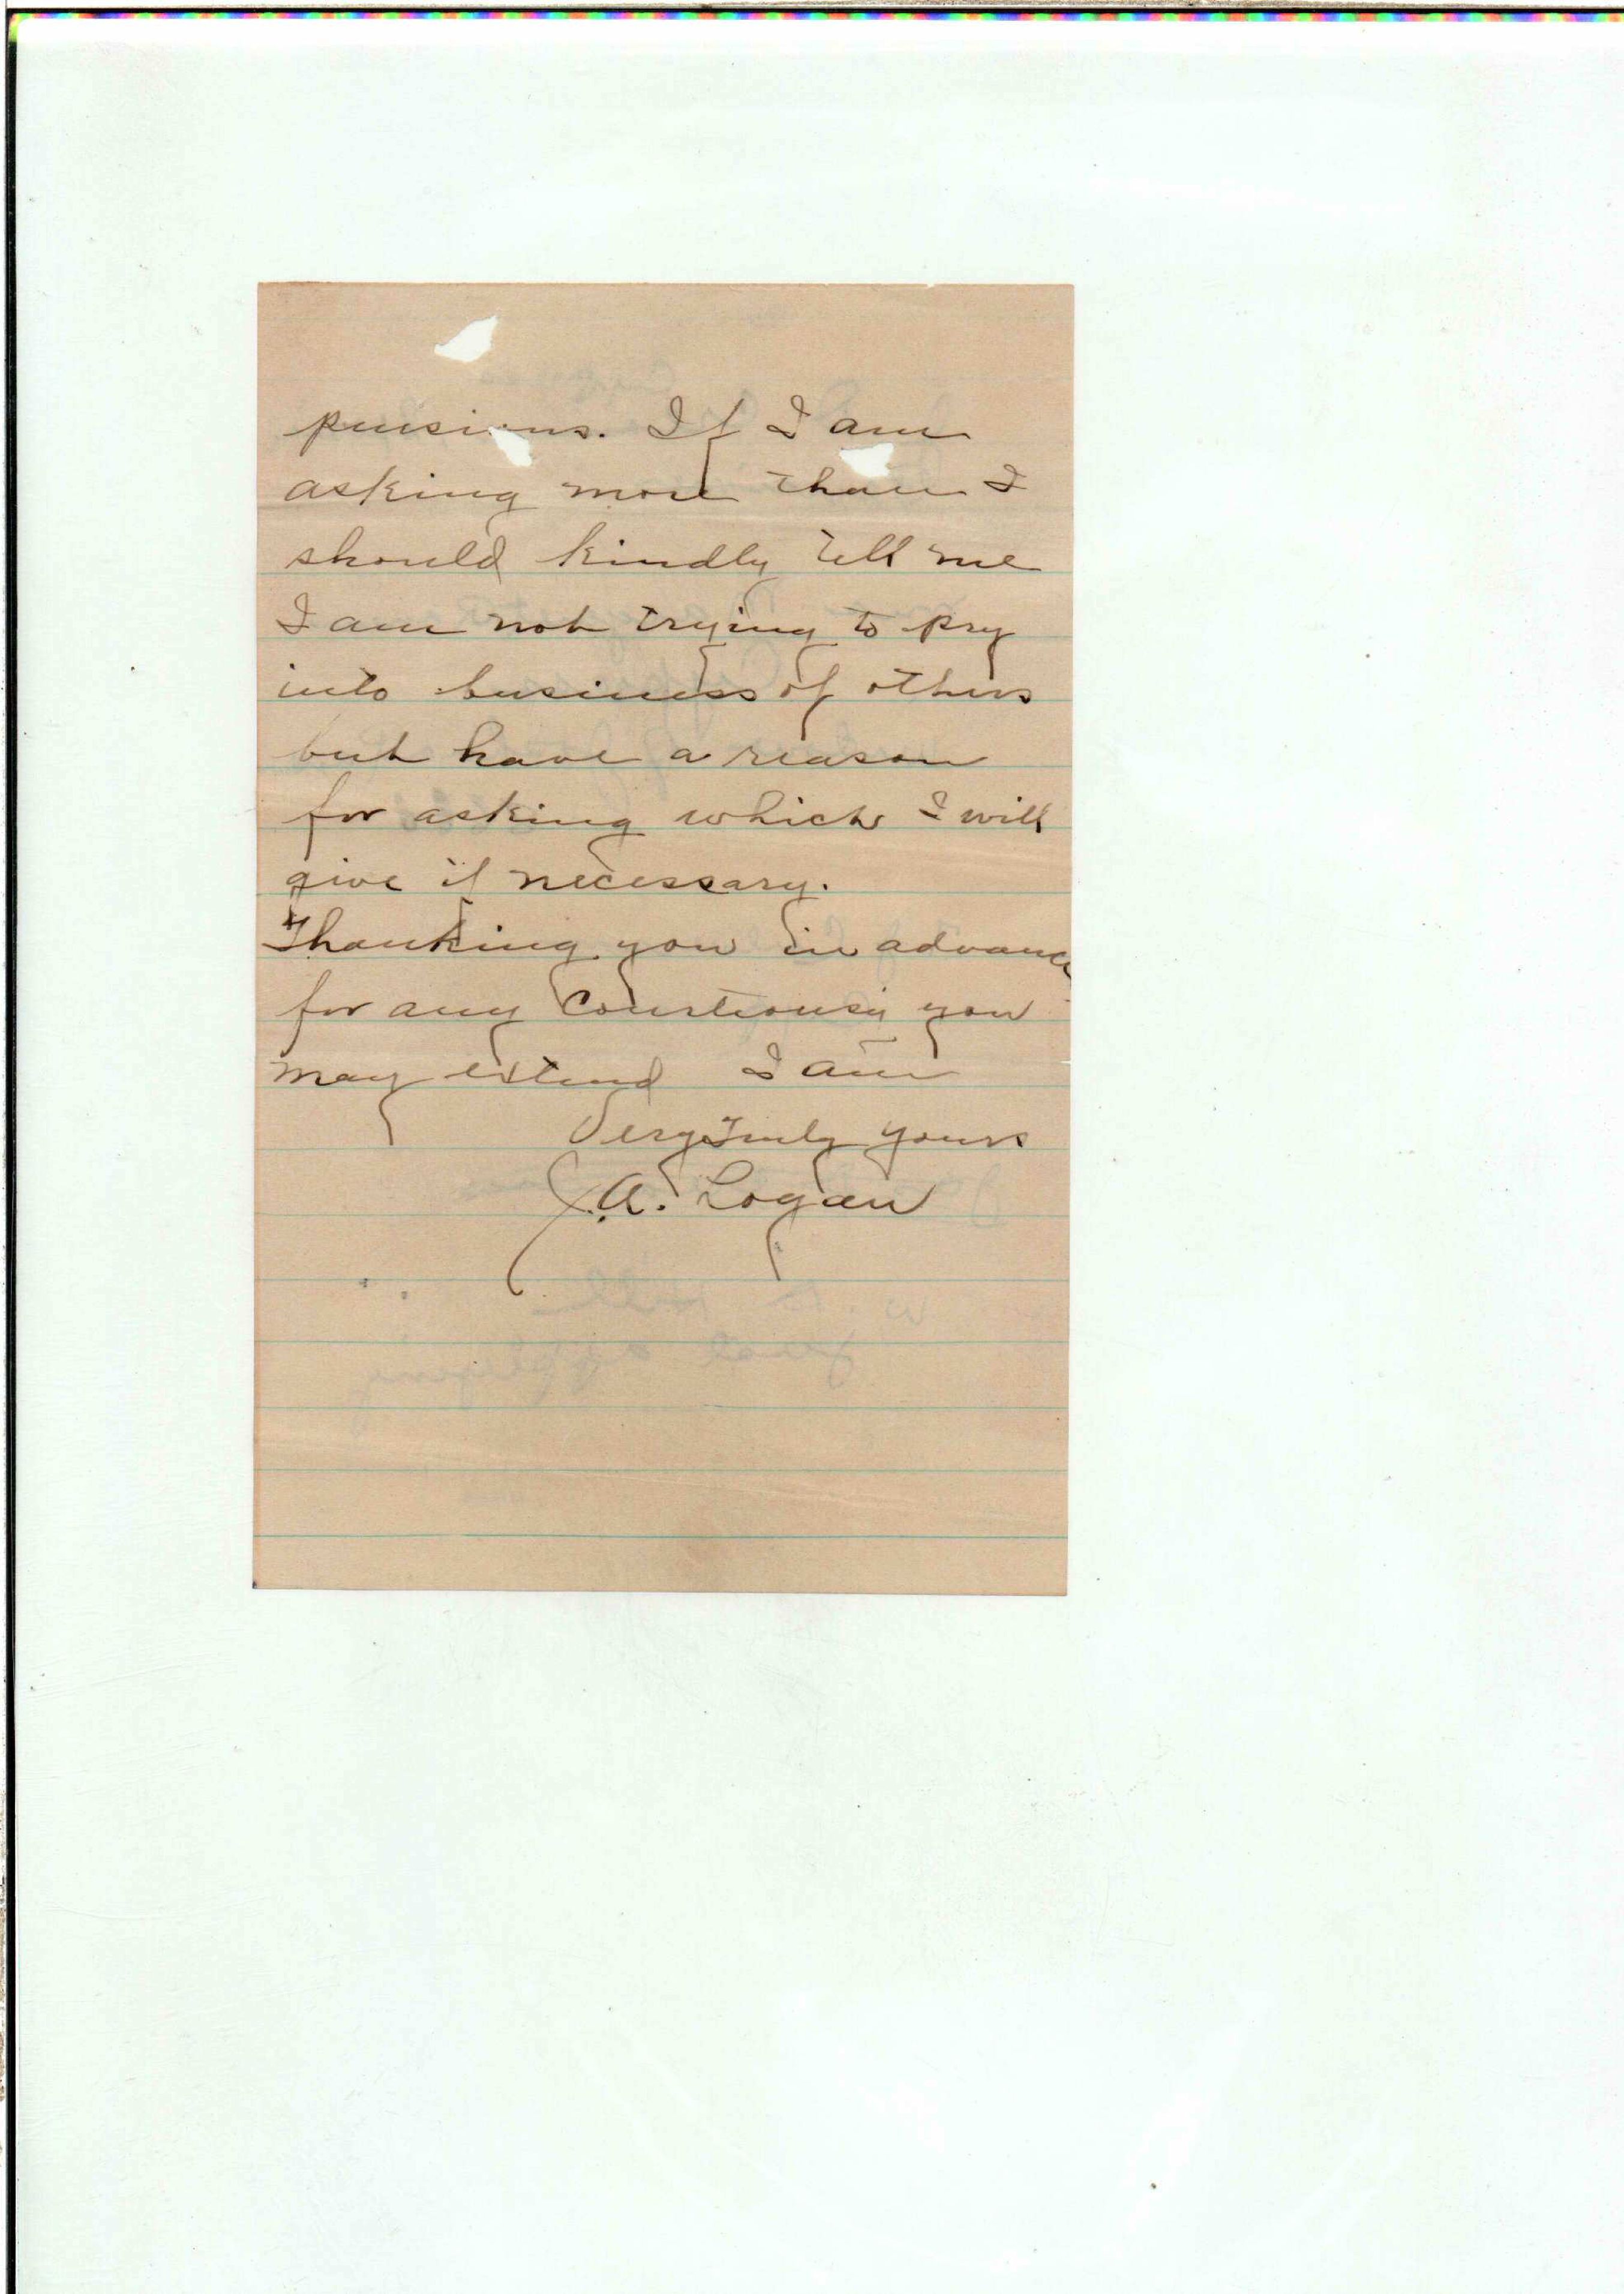 pensions. If I am
asking more than I
should kindly tell me
I am not trying to pry
into business of others
but have a reason
for asking which I will
give if necessary.
Thanking you in advance
for any Courtiousy you
may extend I am
Very Truly yours
J.A. Logan